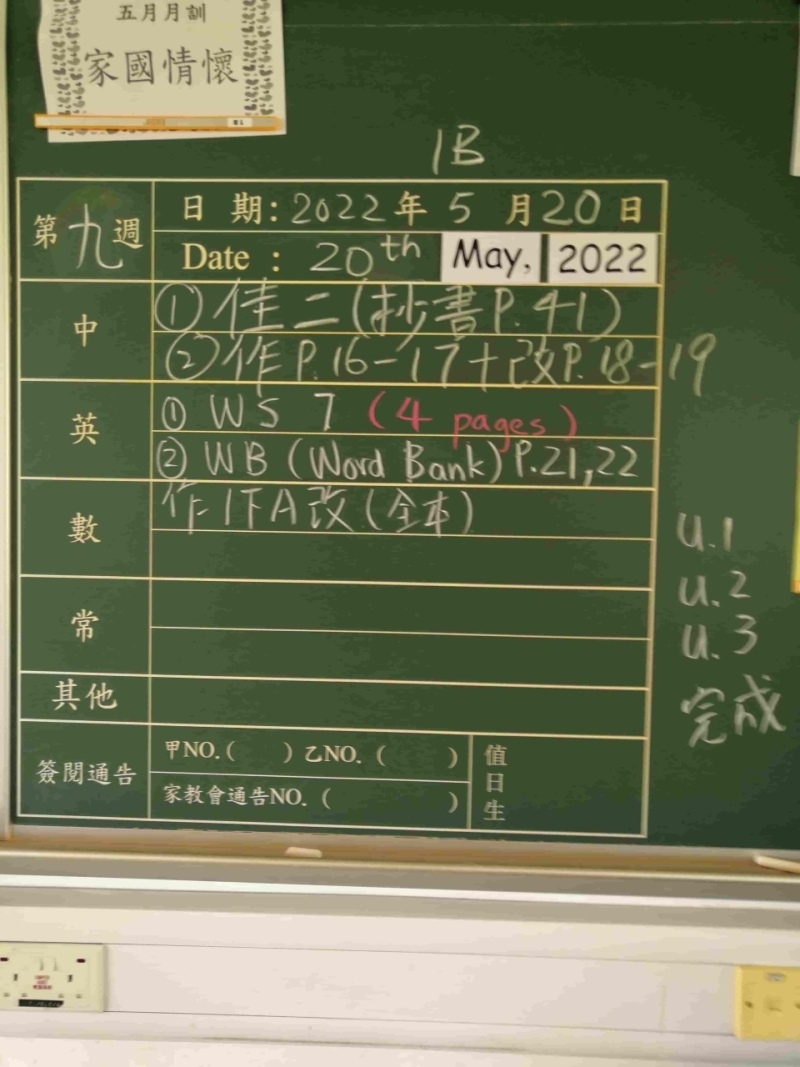 五月月訓
家國情懷
1B
第九週
日 期: 2022 年 5 月 20 日
Date : 20th May, 2022
中
① 佳二 (抄書 P.41)
② 作 P.16-17 + 改 P.18-19
英
① WS 7 (4 pages)
② WB (Word Bank) P.21,22
數
作 1下A 改 (全本)
U.1
U.2
U.3
完成
常
其他
簽閱通告
甲NO. ( ) 乙NO. ( )
家教會通告NO. ( )
值日生